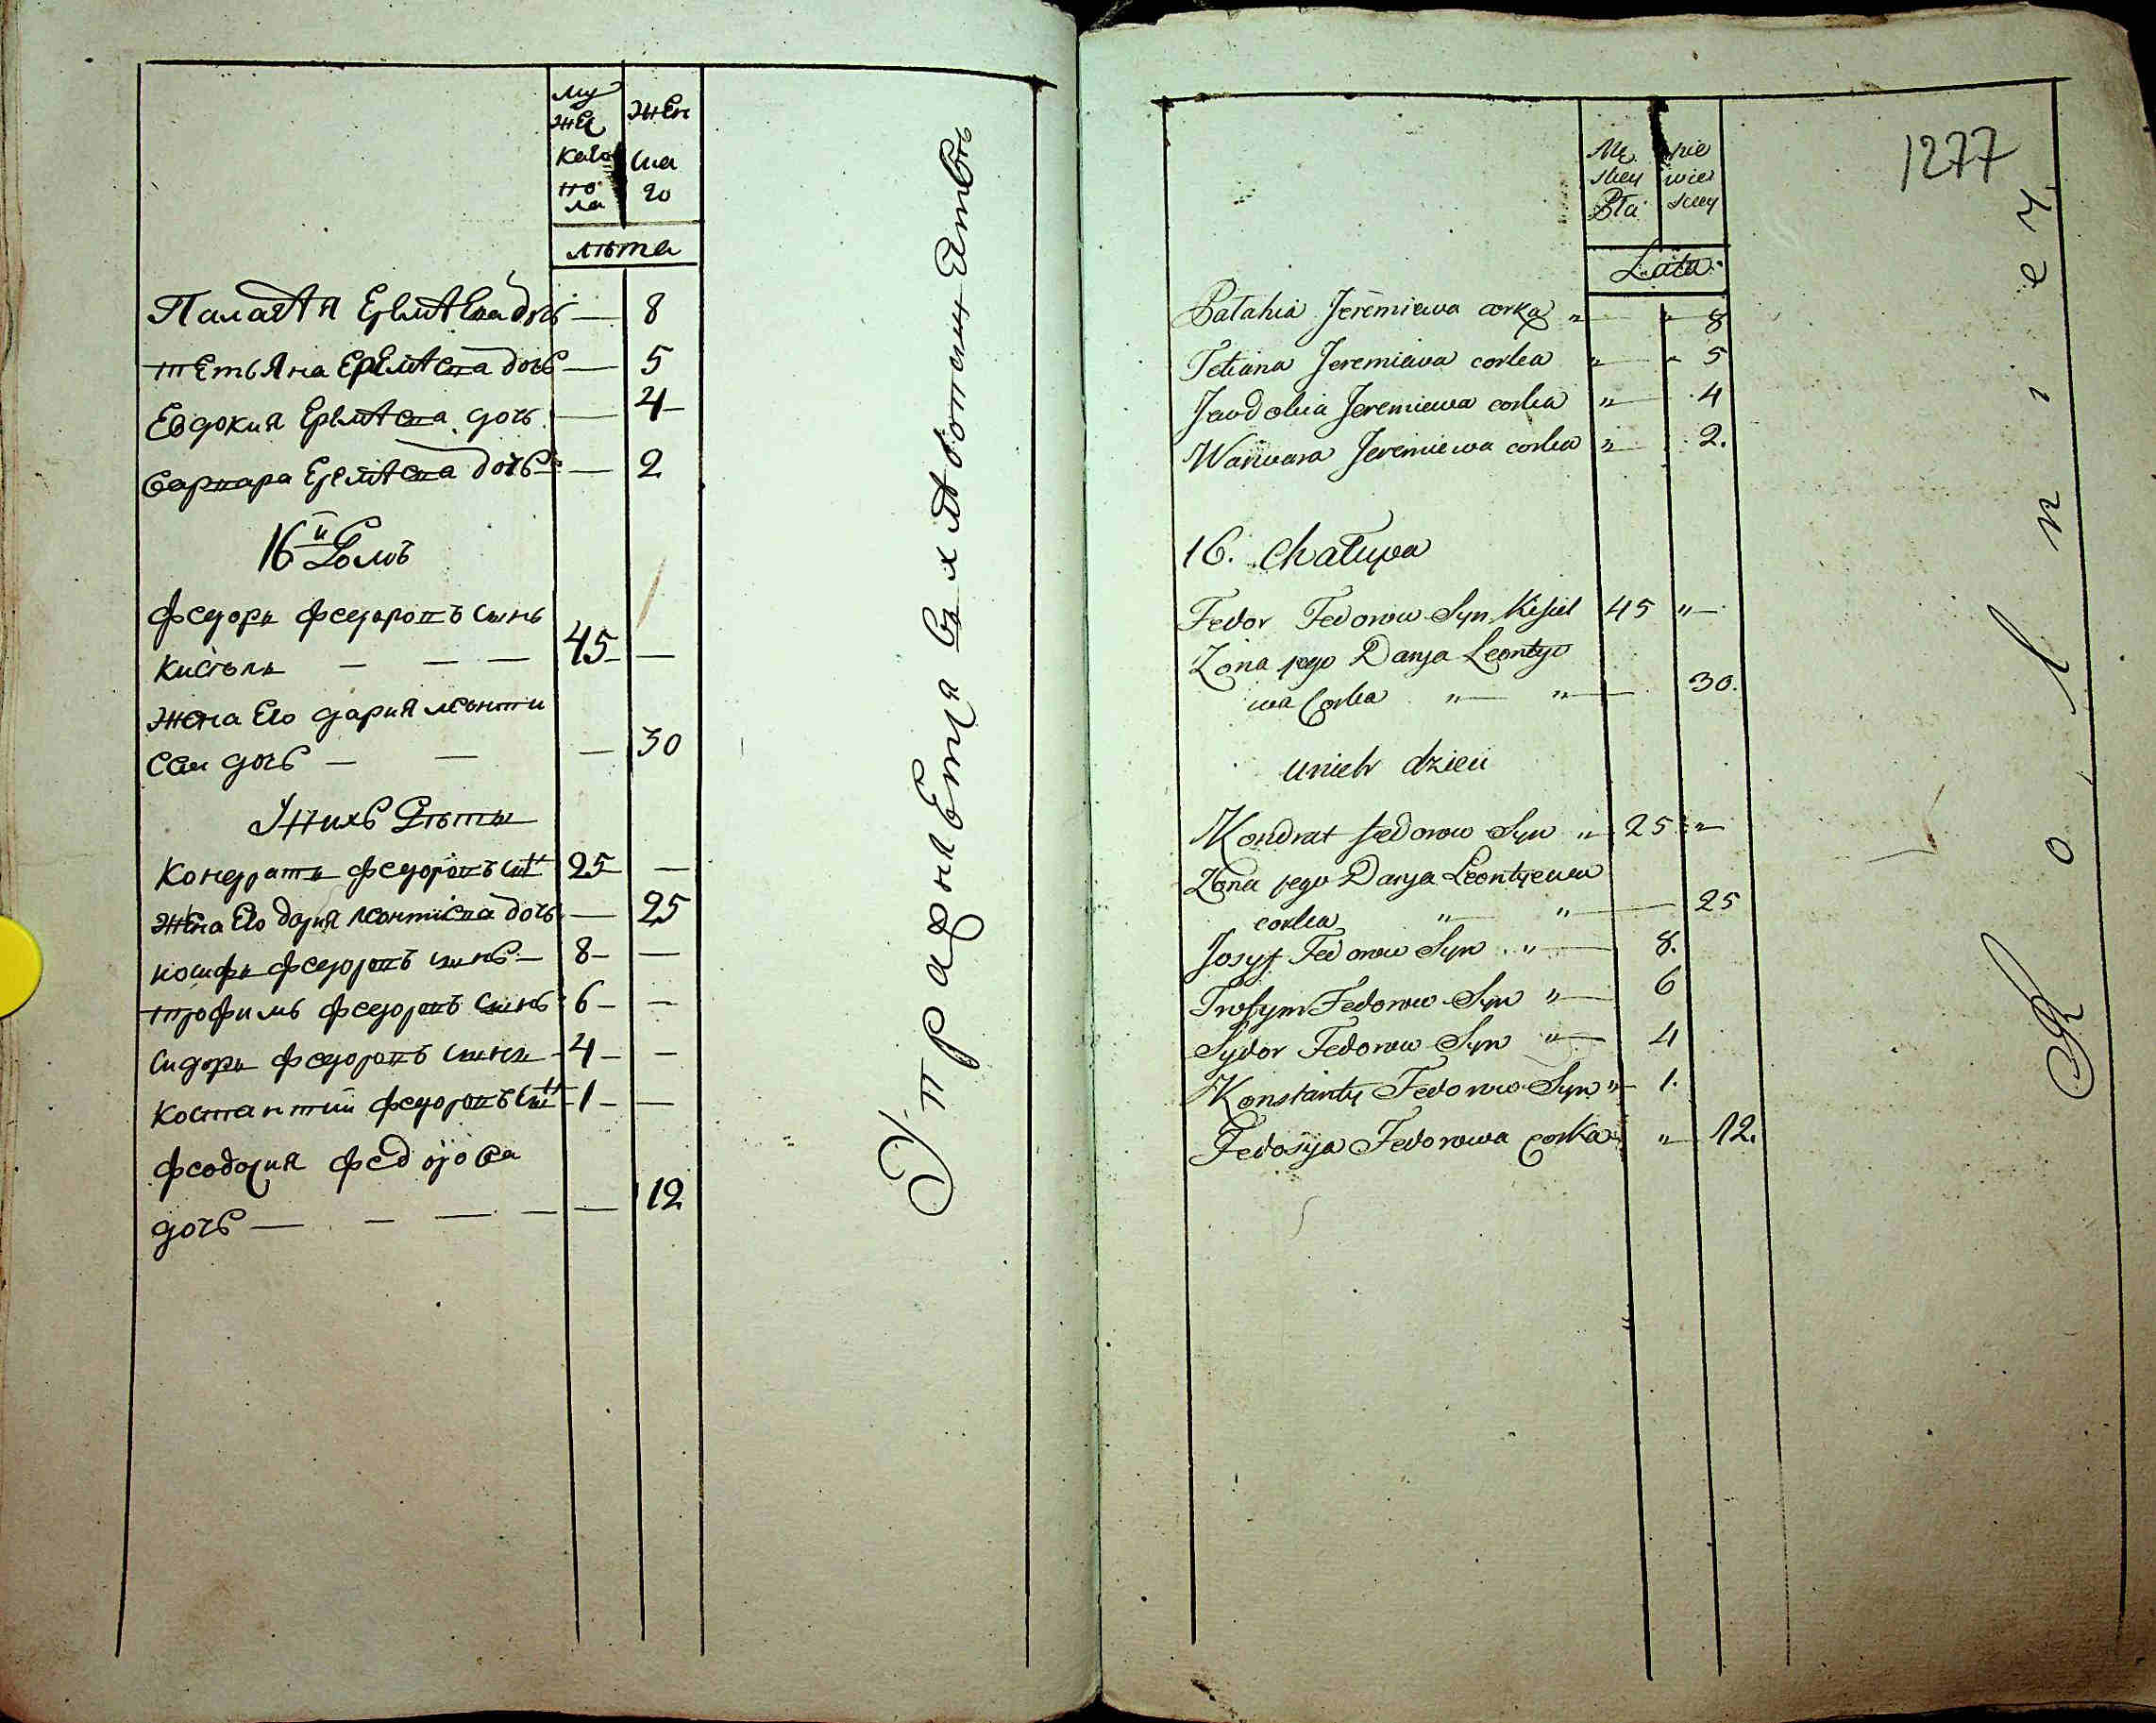 му жен
жес
каго ска
по го
ла
лѣта
Палагѣя Еремѣева дочь — 8
тетьяна Еремѣева дочь — 5
Евдокия Еремѣева дочь — 4
варвара Еремѣева дочь — 2
16й домъ
федоръ федоровъ сынъ
кисѣль — — — 45 —
жена Его дария леонти
ева дочь — — — 30
У них дѣти
кондратъ федоровъ сынъ 25 —
жена Его дария леонтиева дочь — 25
иосифъ федоровъ сынъ — 8 —
трофимъ федоровъ сынъ 6 —
сидоръ федоровъ сынъ — 4 —
костантий федоровъ сынъ — 1 —
феодосия федорова
дочь — — — — — 12
Упражняется въ хлѣбопашествѣ
1277
Mę nie
skey wies
Płci skey
Lata
Pałahia Jeremiewa corka „ — „ 8
Tetiana Jeremiewa corka „ — „ 5
Jewdokia Jeremiewa corka „ — 4
Warwara Jeremiewa corka „ — 2.
16. Chałupa
Fedor Fedorow Syn Kisiel 45 „ —
Zona jego Darya Leontye
wa Corka „ — „ — 30.
u nich dzieci
Kondrat Fedorow Syn „ 25 „ —
Zona jego Darya Leontyewa
corka „ — „ — 25
Josyf Fedorow Syn „ — 8.
Trofym Fedorow Syn „ — 6
Sydor Fedorow Syn „ — 4
Konstanty Fedorow Syn „ — 1.
Fedosya Fedorowa corka „ — 12.
Rolniey